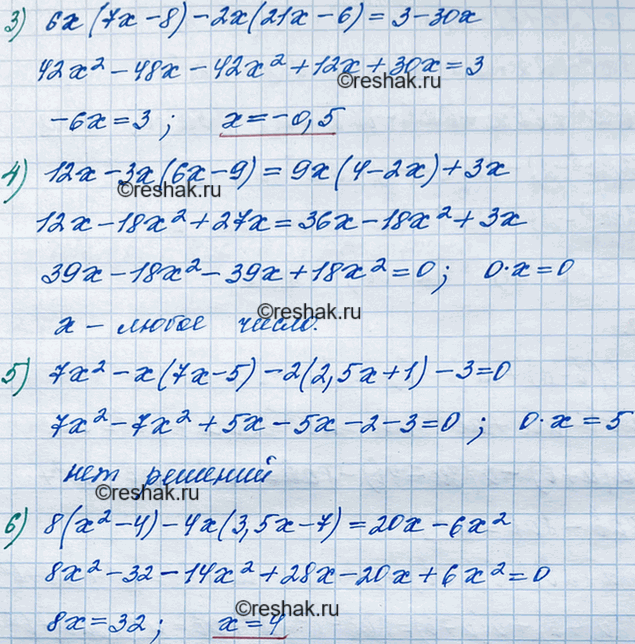 3) 6x(7x-8)-2x(21x-6)=3-30x
42x²-48x-42x²+12x+30x=3
©reshak.ru
-6x=3; x=-0,5
4) 12x-3x(6x-9)=9x(4-2x)+3x
©reshak.ru
12x-18x²+27x=36x-18x²+3x
39x-18x²-39x+18x²=0; 0·x=0
©reshak.ru
x - любое число.
5) 7x²-x(7x-5)-2(2,5x+1)-3=0
7x²-7x²+5x-5x-2-3=0; 0·x=5
нет решений
©reshak.ru
6) 8(x²-4)-4x(3,5x-7)=20x-6x²
8x²-32-14x²+28x-20x+6x²=0
©reshak.ru
8x=32; x=4